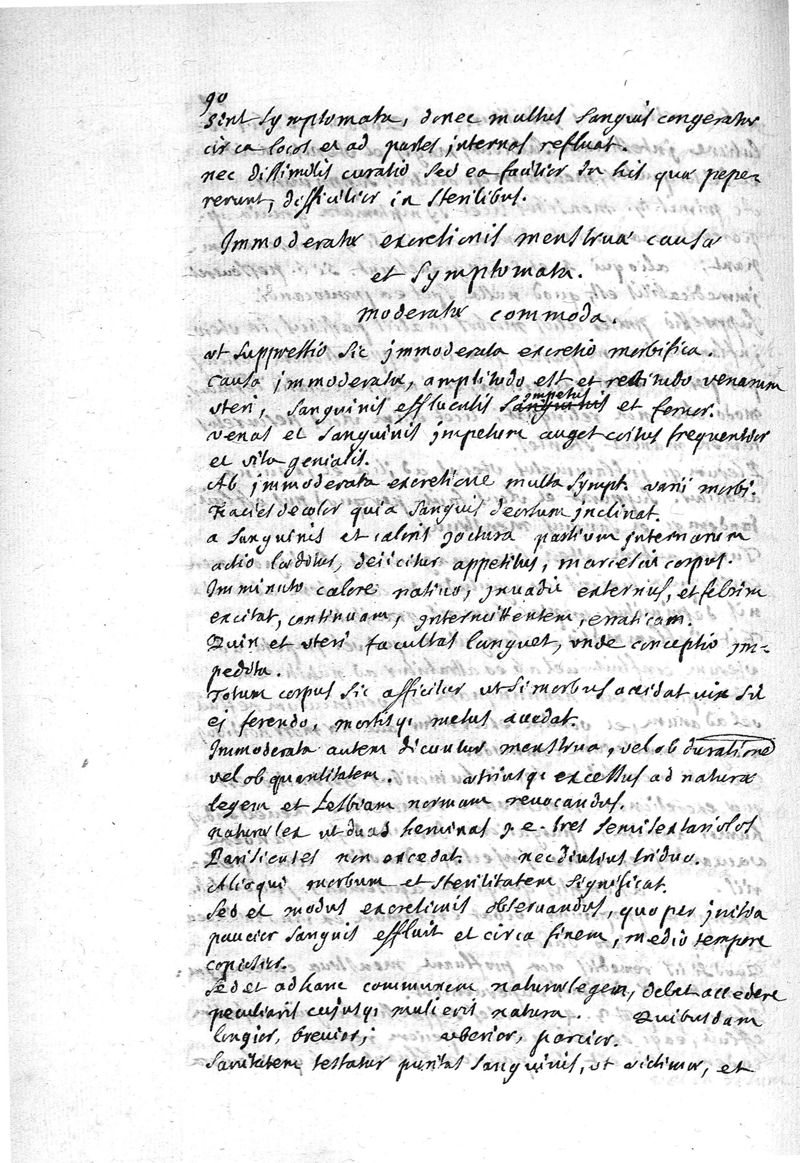 90
sint symptomata, donec multus sanguis congeratur
circa locos et ad partes internas refluat.
nec dissimilis curatio sed ea facilior in his quæ pepe-
rerunt, difficilior in sterilibus.
Immoderatæ excretionis menstruæ causa
et symptomata.
moderatæ commoda.
ut suppressio sic immoderata excretio morbifica.
causa immoderatæ, amplitudo est et rectitudo venarum
uteri, sanguinis effluentis sanguinis impetus et fervor.
venas et sanguinis impetum auget coitus frequentior
et vita genialis.
Ab immoderata excretione multa sympt. varii morbi.
Facies decolor quia sanguis deorsum inclinat.
a sanguinis et caloris jactura partium internarum
actio læditur, deiicitur appetitus, marcescit corpus.
Imminuto calore nativo, invadit externus, et febrim
excitat, continuam, intermittentem, erraticam.
Quin et uteri facultas languet, unde conceptio im-
pedita.
Totum corpus sic afficitur ut si morbus accidat vix sit
ei ferendo, mortisq; metus accedat.
Immoderata autem dicuntur menstrua, vel ob duratione
vel ob quantitatem. utriusq; excessus ad naturæ
legem et Lesbiam normam revocandus.
naturæ lex ut duas heminas i. e. tres semisextariolos
Parisienses non excedat. nec diutius triduo.
Alioqui morbum et sterilitatem significat.
sed et modus excretionis observandus, quo per initia
paucior sanguis effluit et circa finem, medio tempore
copiosior.
sed et ad hanc communem naturæ legem, debet accedere
peculiaris cujusq; mulieris natura. Quibusdam
longior, brevior, uberior, parcior.
sanitatem testatur puritas sanguinis, ut vidimus, et